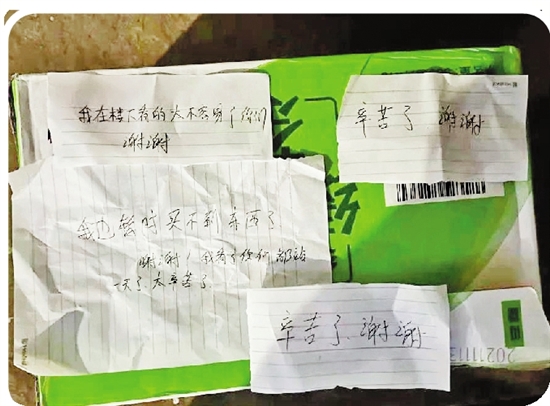 我在楼下夜的太不容易了你们
谢谢
辛苦了 谢谢
我也暂时买不到东西了
谢谢！我看了你们都站
一天了.太辛苦了.
辛苦了.谢谢.
20211113